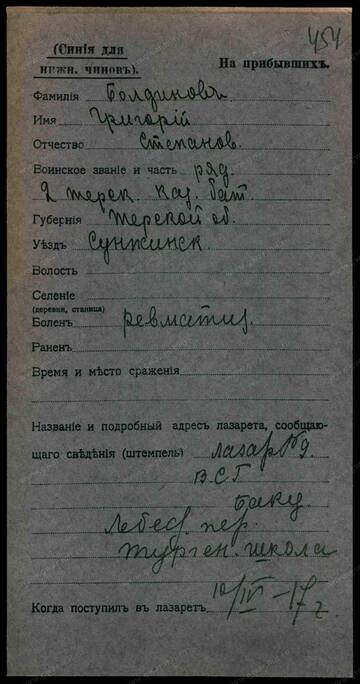 454
(Синія для
нижн. чиновъ).
На прибывшихъ.
Фамилія Болдиновъ
Имя Григорій
Отчество Степанов.
Воинское званіе и часть ряд.
2 терск. каз. бат.
Губернія Терской об.
Уѣздъ Сунжинск.
Волость
Селеніе
(деревня, станица)
Боленъ ревматиз.
Раненъ
Время и мѣсто сраженія
Названіе и подробный адресъ лазарета, сообщаю-
щаго свѣдѣнія (штемпель) лазар № 9.
В.С.Г.
Баку
Лебед. пер.
Турген. школа
Когда поступил въ лазаретъ 10/IV-17 г